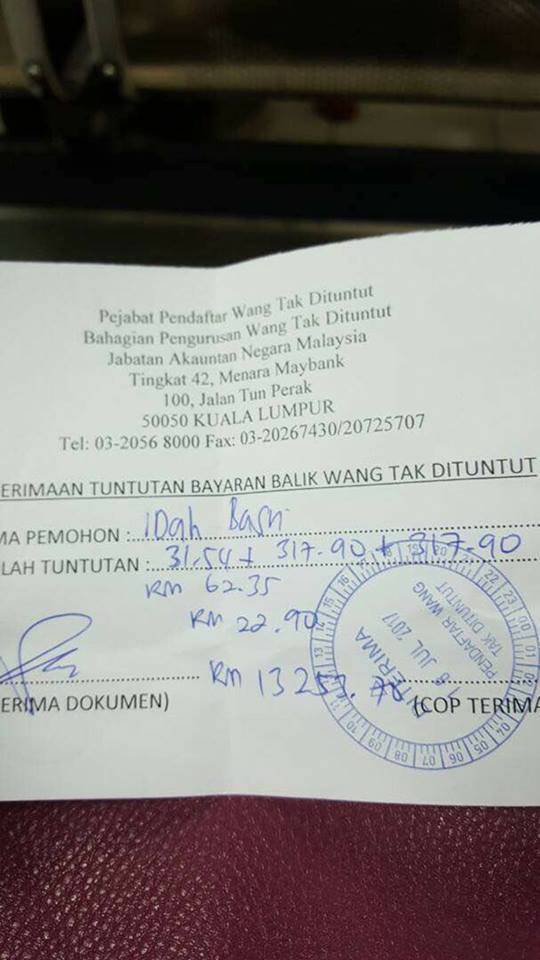 Pejabat Pendaftar Wang Tak Dituntut
Bahagian Pengurusan Wang Tak Dituntut
Jabatan Akauntan Negara Malaysia
Tingkat 42, Menara Maybank
100, Jalan Tun Perak
50050 KUALA LUMPUR
Tel: 03-2056 8000 Fax: 03-20267430/20725707
ERIMAAN TUNTUTAN BAYARAN BALIK WANG TAK DITUNTUT
MA PEMOHON : iDah
LAH TUNTUTAN : 31.54 + 317.90 + 317.90
RM 62.35
RM 22.90
RM 13253.
ERIMA DOKUMEN) (COP TERIMA
TERIMA
JUL 2017
PENDAFTAR WANG
TAK DITUNTUT
13 14 15 16 17 18 19 20 21 22 23 00 01 02 03 04 05 06 07 08 09 10 11 12